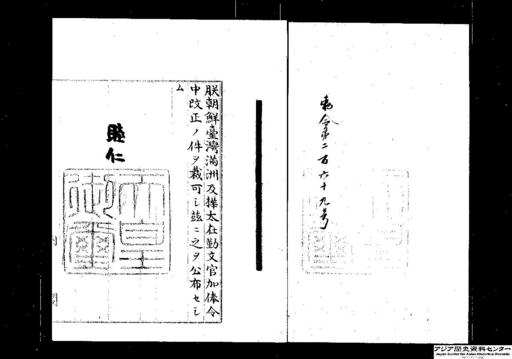 勅令第二百六十九号
朕朝鮮臺灣滿洲及樺太在勤文官加俸令
中改正ノ件ヲ裁可シ茲ニ之ヲ公布セシ
ム
睦仁
天皇
御璽
アジア歴史資料センター
Japan Center for Asian Historical Records